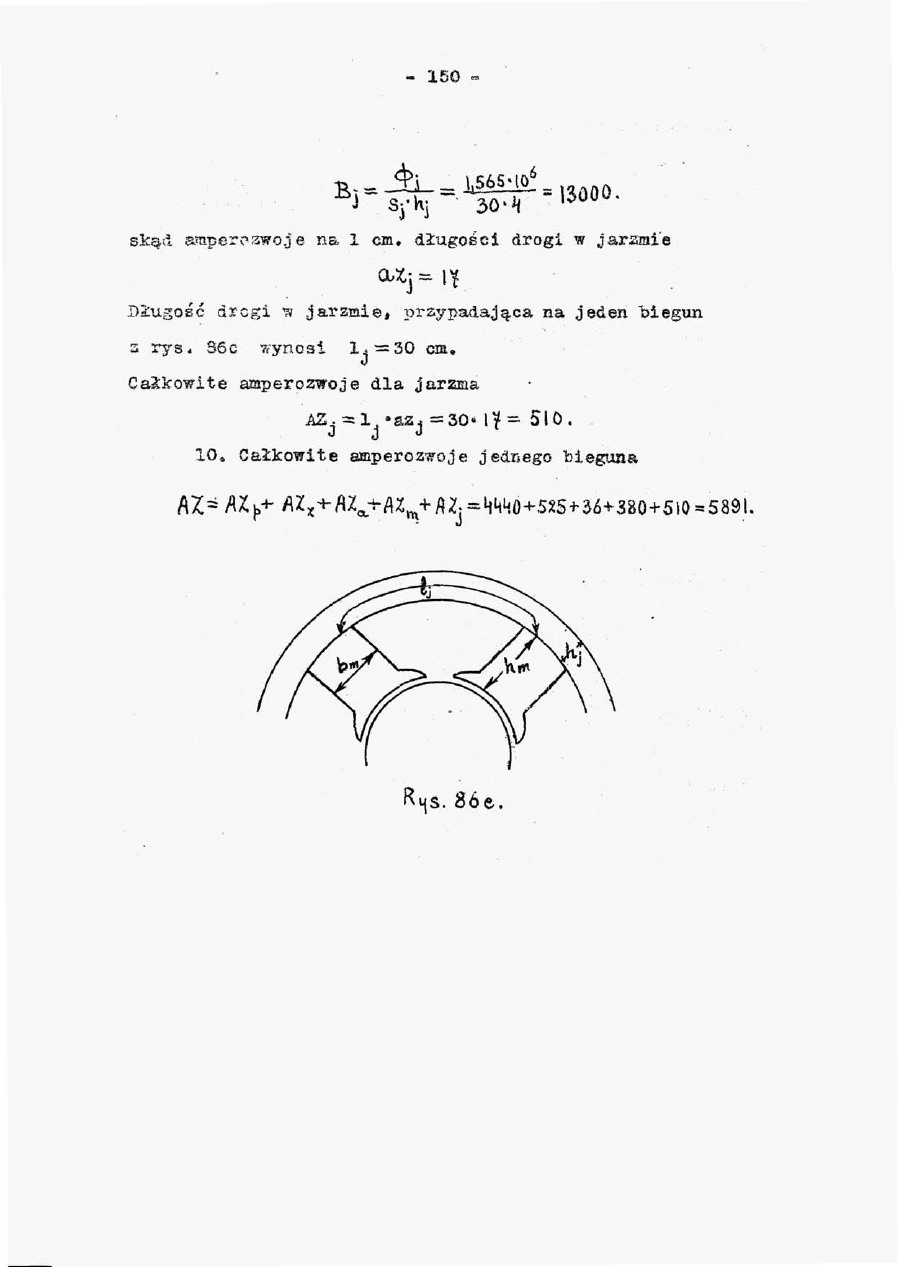 - 150 -
Bj = Φj / sj·hj = 1,565·10⁶ / 30·4 = 13000.
skąd amperozwoje na 1 cm. długości drogi w jarzmie
azj = 17
Długość drogi w jarzmie, przypadająca na jeden biegun
z rys. 86c wynosi lj = 30 cm.
Całkowite amperozwoje dla jarzma
AZj = lj·azj = 30·17 = 510.
10. Całkowite amperozwoje jednego bieguna
AZ = AZp + AZz + AZa + AZm + AZj = 4440+525+36+380+510 = 5891.
lj
bm hm hj
Rys. 86e.